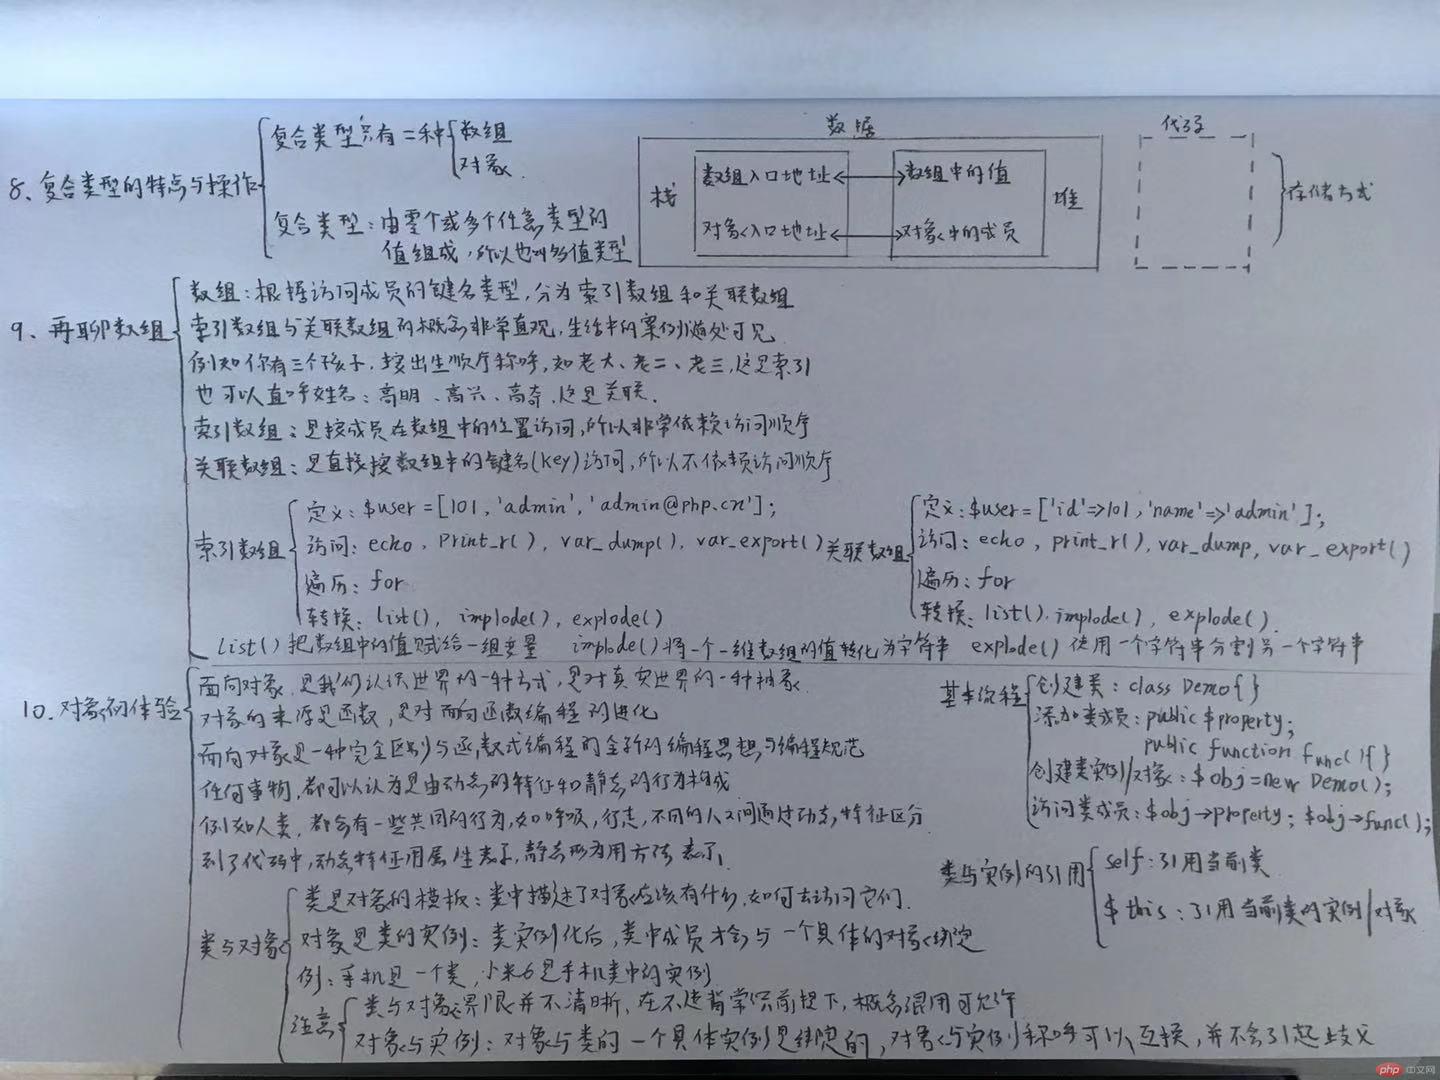 8、复合类型的特点与操作
复合类型只有二种
数组
对象.
复合类型：由零个或多个任意类型的
值组成，所以也叫多值类型
数据
栈
数组入口地址
数组中的值
对象入口地址
对象中的成员
堆
代码
存储方式
9、再聊数组
数组：根据访问成员的键名类型，分为索引数组和关联数组
索引数组与关联数组的概念非常直观，生活中的案例随处可见
例如你有三个孩子，按出生顺序称呼，如老大、老二、老三，这是索引
也可以直呼姓名：高明、高兴、高奇，这是关联.
索引数组：是按成员在数组中的位置访问，所以非常依赖访问顺序
关联数组：是直接按数组中的键名(key)访问，所以不依赖访问顺序
索引数组
定义：$user=[101,'admin','admin@php.cn'];
访问：echo, print_r(), var_dump(), var_export()
遍历：for
转换：list(), implode(), explode()
关联数组
定义：$user=['id'=>101,'name'=>'admin'];
访问：echo, print_r(), var_dump, var_export()
遍历：for
转换：list(), implode(), explode()
list()把数组中的值赋给一组变量 implode()将一个一维数组的值转化为字符串 explode()使用一个字符串分割另一个字符串
10.对象初体验
面向对象，是我们认识世界的一种方式，是对真实世界的一种抽象
对象的来源是函数，是对面向函数编程的进化
面向对象是一种完全区别与函数式编程的全新的编程思想与编程规范
任何事物，都可以认为是由动态的特征和静态的行为构成
例如人类，都会有一些共同的行为，如呼吸，行走，不同的人之间通过动态特征区分
到了代码中，动态特征用属性表示，静态行为用方法表示
基本流程
创建类：class Demo{}
添加类成员：public $property;
public function func(){}
创建类实例/对象：$obj=new Demo();
访问类成员：$obj->property; $obj->func();
类与实例的引用
self：引用当前类
$this：引用当前类的实例/对象
类与对象
类是对象的模板：类中描述了对象应该有什么，如何去访问它们.
对象是类的实例：类实例化后，类中成员才会与一个具体的对象绑定
例：手机是一个类，小米6是手机类中的实例
注意
类与对象界限并不清晰，在不违背常识前提下，概念混用可允许
对象与实例：对象与类的一个具体实例是绑定的，对象与实例称呼可以互换，并不会引起歧义
php 中文网